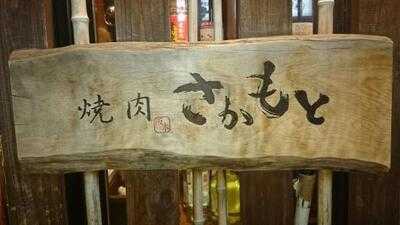 焼肉 さかもと